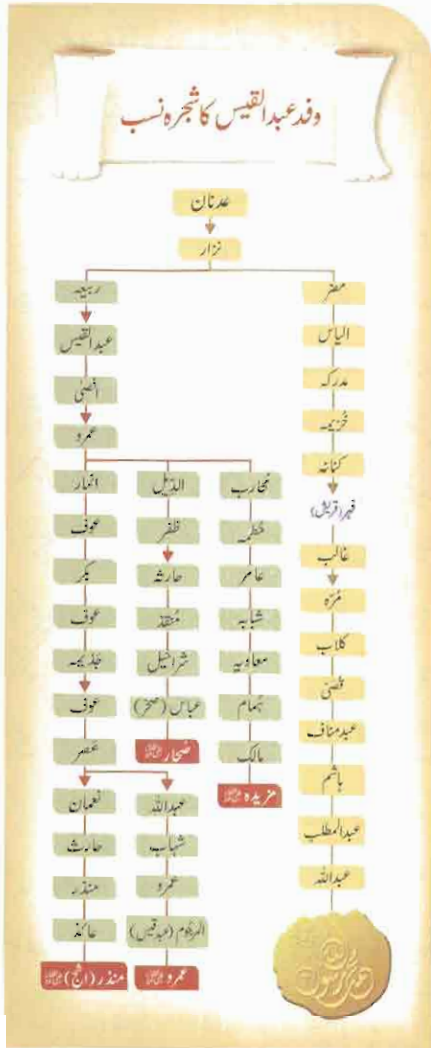 وفد عبدالقیس کا شجرہ نسب
عدنان
نزار
مضر
الیاس
مدرکہ
خزیمہ
کنانہ
فہر (قریش)
غالب
مُرّہ
کلاب
قصّی
عبد مناف
ہاشم
عبدالمطلب
عبداللہ
محمد رسول اللہ
ربیعہ
عبدالقیس
افصٰی
عمرو
محارب
حطمہ
عامر
شبابہ
معاویہ
ہمام
مالک
مزیدہ
الدّیل
ظفر
حارثہ
مُنقذ
شراحیل
عباس (صخر)
صُحار
انمار
عوف
بکر
عوف
جذیمہ
عوف
عصر
عبداللہ
شہاب
عمرو
المرجوم (عبدقیس)
عمرو
نعمان
حارث
منذر
عائذ
منذر (اشج)